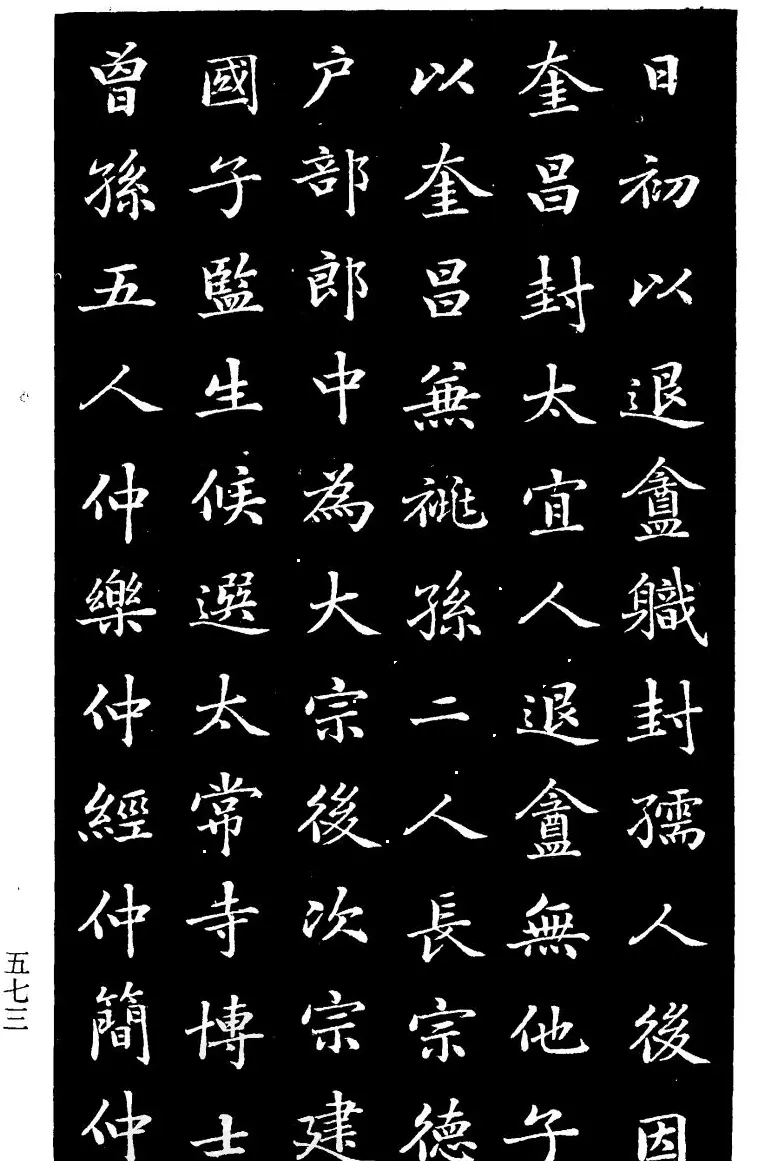 日初以退盦職封孺人後因
奎昌封太宜人退盦無他子
以奎昌兼祧孫二人長宗德
户部郎中為大宗後次宗建
國子監生候選太常寺博士
曾孫五人仲樂仲經仲簡仲
五七三